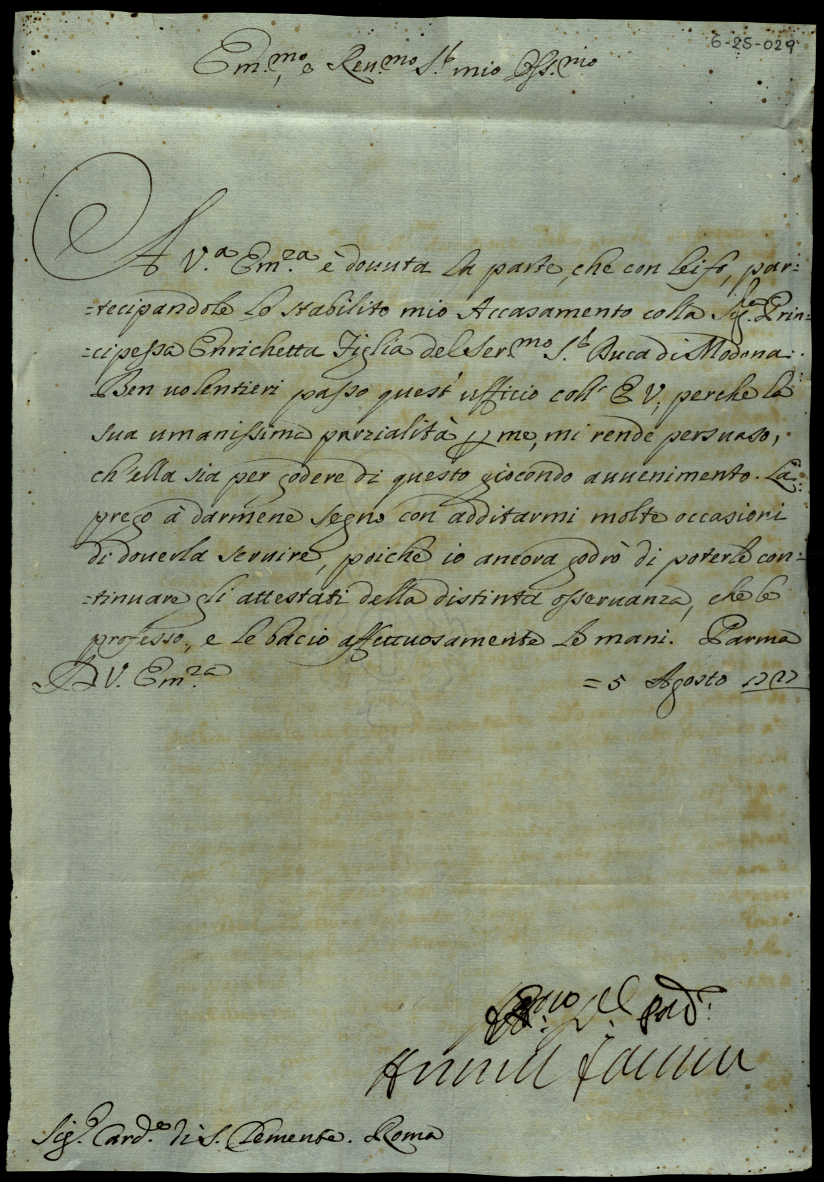 6-25-029
Em.mo, e Reu.mo S.r mio Oss.mo
A V.a Em.za è douuta la parte, che con lei fò, par=
=tecipandole lo stabilito mio Accasamento colla Sig.ra Prin=
=cipessa Enrichetta Figlia del Ser.mo S.r Duca di Modona.
Ben uolentieri passo quest' ufficio coll' E V, perche la
sua umanissima parzialità me, mi rende persuaso,
ch'ella sia per godere di questo giocondo auuenimento. La
prego à darmene segno con additarmi molte occasioni
di douerla seruire, poiche io ancora godrò di poterle con=
=tinuare gli attestati della distinta osseruanza, che le
professo, e le bacio affettuosamente le mani. Parma
D V. Em.za = 5 Agosto 1727
Sig.r Card.e di S. Clemente. Roma